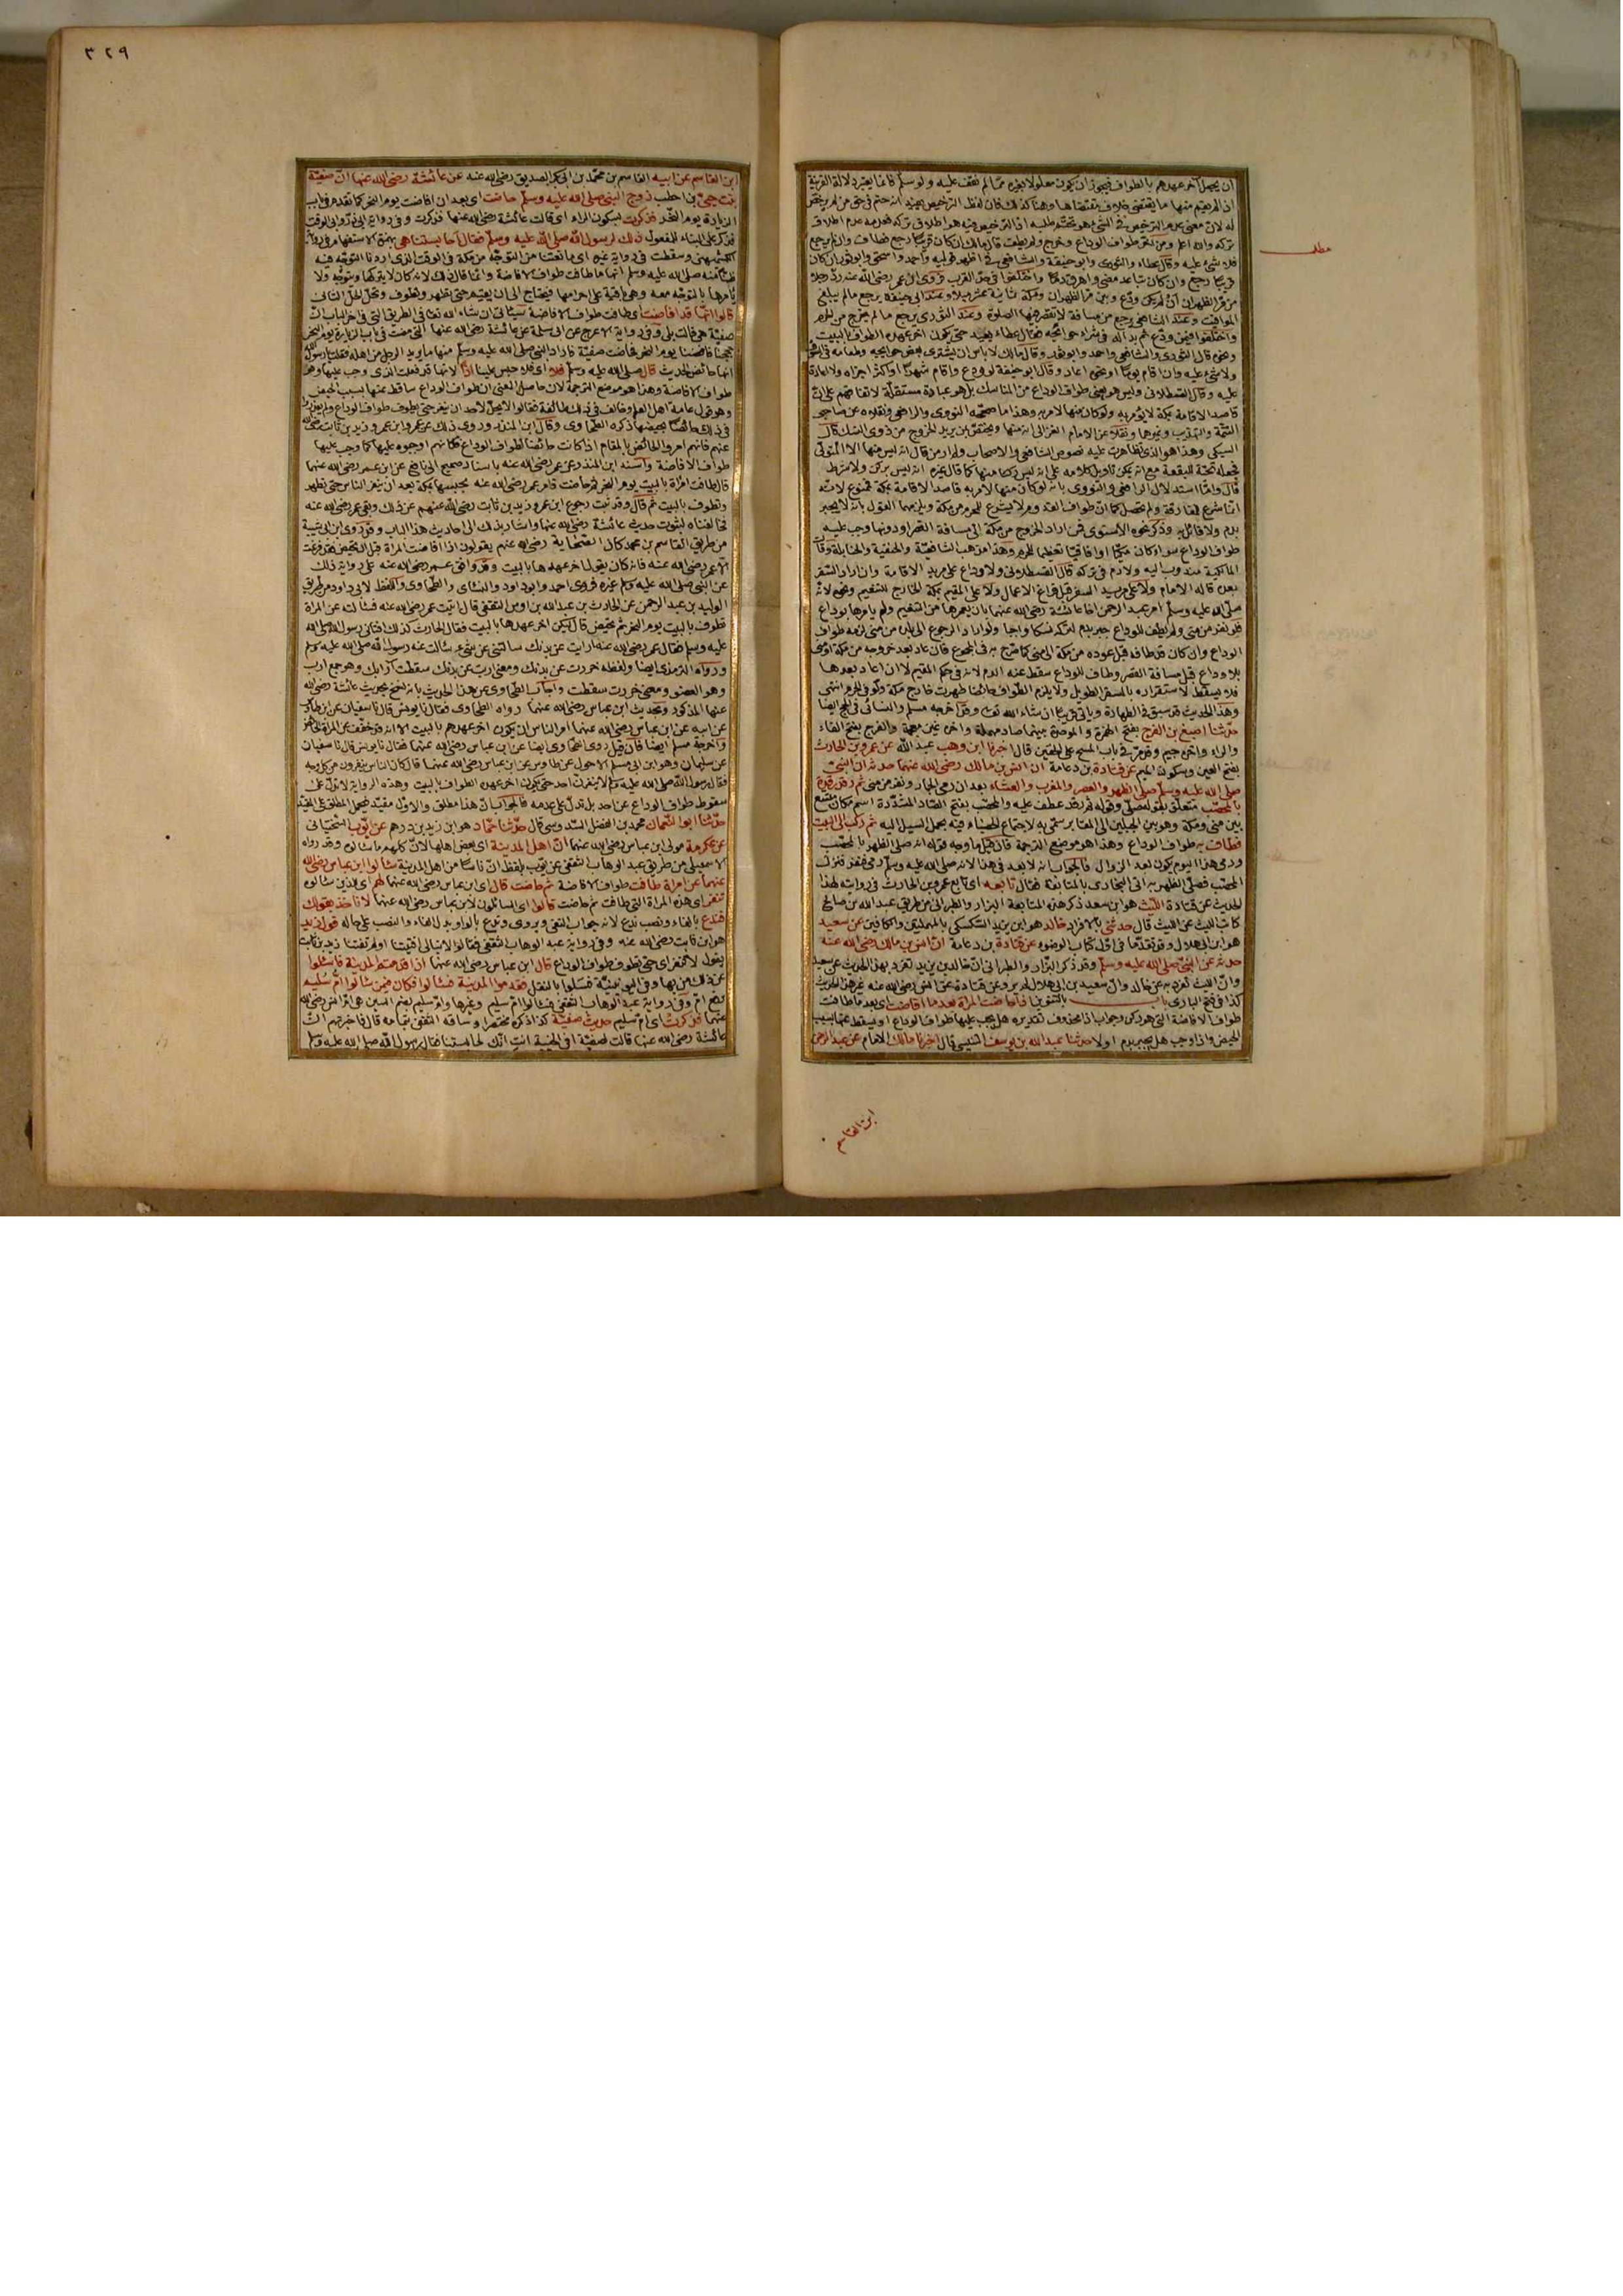 ٣٢٩
ان يجعل آخر عهدهم بالطواف فيجوز ان يكون معلولا بغيره مما لم نقف عليه ولو سلم فانما يعتبر دلالة القرينة
اذا لم يقم منها ما يقتضى خلاف مقتضاها وهنا كذلك فان لفظ الترخيص يفيد انه حتم فى حق من لم يرخص
له لان معنى عدم الترخيص فى الشئ هو تحتم طلبه اذ الترخيص فيه هو اطلاق تركه فعدمه عدم اطلاق
تركه والله اعلم ومن نفر ولم يطف قال مالك ان كان قريبا رجع فطاف وان لم يرجع
فلا شئ عليه وقال عطاء والثورى وابو حنيفة والشافعى فى اظهر قوليه واحمد واسحق وابو ثور ان كان
قريبا رجع وان كان تباعد مضى واهرق دما واختلفوا فى حد القرب فروى ان عمر رضى الله عنه رد رجلا
من مر الظهران لم يكن ودع وبين مر الظهران ومكة ثمانية عشر ميلا وعند ابى حنيفة يرجع ما لم يبلغ
المواقيت وعند الشافعى يرجع من مسافة لا تقصر فيها الصلوة وعند الثورى يرجع ما لم يخرج من الحرم
واختلفوا فيمن ودع ثم بدا له فى شراء حوائجه فقال عطاء يعيد حتى يكون آخر عهده الطواف بالبيت
وبنحوه قال الثورى والشافعى واحمد وابو ثور وقال مالك لا بأس ان يشترى بعض حوائجه وطعامه فى السوق
ولا شئ عليه وان اقام يوما او نحوه اعاد وقال ابو حنيفة لو ودع واقام شهرا او اكثر اجزاه ولا اعادة
عليه وقال القسطلانى وليس هو يعنى طواف الوداع من المناسك بل هو عبادة مستقلة لاتفاقهم على ان
قاصد الاقامة بمكة لا يؤمر به ولو كان منها لامر به وهذا ما صححه النووى والرافعى ونقلاه عن صاحبى
التتمة والتهذيب وغيرهما ونقلا عن الامام الغزالى انه منها ويختص بمن يريد الخروج من ذوى النسك قال
السبكى وهذا هو الذى تظاهرت عليه نصوص الشافعى والاصحاب ولم ار من قال انه ليس منها الا المتولى
فجعله تحية للبقعة مع انه يمكن تاويل كلامه على انه ليس ركنا منها كما قال غيره انه ليس بركن ولا شرط
قال واما استدلال الرافعى والنووى بانه لو كان منها لامر به قاصد الاقامة بمكة فممنوع لانه
انما شرع للمفارقة ولم تحصل كما ان طواف القدوم لا يشرع للمحرم من مكة ويلزمهما القول بانه لا يجبر
بدم ولا قائل به وذكر نحوه الاسنوى فمن اراد الخروج من مكة الى مسافة القصر او دونها وجب عليه
طواف الوداع سواء كان مكيا او افاقيا تعظيما للحرم وهذا مذهب الشافعية والحنفية والحنابلة وقال
المالكية مندوب اليه ولا دم فى تركه قال القسطلانى ولا وداع على مريد الاقامة وان اراد السفر
بعده قاله الامام ولا على مريد السفر قبل فراغ الاعمال ولا على المقيم بمكة الخارج للتنعيم ونحوه لانه
صلى الله عليه وسلم امر عبد الرحمن اخا عائشة رضى الله عنهما بان يعمرها من التنعيم ولم يامرها بوداع
فلو نفر من منى ولم يطف للوداع جبر بدم لتركه نسكا واجبا ولو اراد الرجوع الى بلده من منى لزمه طواف
الوداع وان كان قد طافه قبل عوده من مكة الى منى كما صرح به فى المجموع فان عاد بعد خروجه من مكة او منى
بلا وداع قبل مسافة القصر وطاف للوداع سقط عنه الدم لانه فى حكم المقيم لا ان اعاد بعدها
فلا يسقط لاستقراره بالسفر الطويل ولا يلزم الطواف حائضا طهرت خارج مكة ولو فى الحرم انتهى
وهذا الحديث قد سبق فى الطهارة وياتى قريبا ان شاء الله تعالى وقد اخرجه مسلم والنسائى فى الحج ايضا
حدثنا اصبغ بن الفرج بفتح الهمزة والموحدة بينهما صاد مهملة واخره غين معجمة والفرج بفتح الفاء
والراء واخره جيم وقد مر فى باب المسح على الخفين قال اخبرنا ابن وهب عبد الله عن عمرو بن الحارث
بفتح العين وسكون الميم عن قتادة بن دعامة ان انس بن مالك رضى الله عنهما حدثه ان النبى
صلى الله عليه وسلم صلى الظهر والعصر والمغرب والعشاء بعد ان رمى الجمار ونفر من منى ثم رقد رقدة
بالمحصب متعلق بقوله صلى وقوله ثم رقد عطف عليه والمحصب بفتح الصاد المشددة اسم مكان متسع
بين منى ومكة وهو بين الجبلين الى المقابر سمى به لاجتماع الحصباء فيه بحمل السيل اليه ثم ركب الى البيت
فطاف به طواف الوداع وهذا هو موضع الترجمة فان قيل ما وجه قوله انه صلى الظهر بالمحصب
ورمى هذا اليوم يكون بعد الزوال فالجواب انه لا بعد فى هذا لانه صلى الله عليه وسلم رمى فنفر فنزل
المحصب فصلى الظهر به اتى البخارى بالمتابعة فقال تابعه اى تابع عمرو بن الحارث فى روايته لهذا
الحديث عن قتادة الليث هو ابن سعد ذكر هذه المتابعة البزار والطبرانى من طريق عبد الله بن صالح
كاتب الليث عن الليث قال حدثنى بالافراد خالد هو ابن يزيد السكسكى عن سعيد
هو ابن ابى هلال وقد تقدما فى اول كتاب الوضوء عن قتادة بن دعامة ان انس بن مالك رضى الله عنه
حدثه عن النبى صلى الله عليه وسلم وقد ذكر البزار والطبرانى ان خالد بن يزيد تفرد بهذا الحديث عن سعيد
وان الليث تفرد به عن خالد وان سعيد بن ابى هلال لم يرو عن قتادة عن انس رضى الله عنه غير هذا الحديث
كذا فى فتح البارى باب بالتنوين اذا حاضت المراة بعد ما افاضت اى بعد ما طافت
طواف الافاضة التى هو ركن وجواب اذا محذوف تقديره هل يجب عليها طواف الوداع او يسقط عنها بسبب
الحيض واذا وجب هل يجبر بدم اولا حدثنا عبد الله بن يوسف التنيسى قال اخبرنا مالك الامام عن عبد الرحمن
مطلب
ابن القاسم
ابن القاسم عن ابيه القاسم بن محمد بن ابى بكر الصديق رضى الله عنه عن عائشة رضى الله عنها ان صفية
بنت حيى بن اخطب زوج النبى صلى الله عليه وسلم حاضت اى بعد ان افاضت يوم النحر كما تقدم فى باب
الزيارة يوم النحر فذكرت بسكون الراء اى قالت عائشة رضى الله عنها فذكرت وفى رواية ابى ذر وابى الوقت
فذكر على البناء للمفعول ذلك لرسول الله صلى الله عليه وسلم فقال أحابستنا هى بهمزة الاستفهام فى رواية
الكشميهنى وسقطت فى رواية غيره اى مانعتنا من التوجه من مكة فى الوقت الذى اردنا التوجه فيه
ظنا منه صلى الله عليه وسلم انها ما طافت طواف الافاضة وانما قال ذلك لانه كان لا يتركها ويتوجه ولا
يامرها بالتوجه معه وهى باقية على احرامها فيحتاج الى ان يقيم حتى تطهر وتطوف وتحل الحل الثانى
قالوا انها قد افاضت اى طافت طواف الافاضة سيأتى ان شاء الله تعالى فى الطريق التى فى اخر الباب ان
صفية هى قالت بلى وفى رواية الاعرج عن ابى سلمة عن عائشة رضى الله عنها التى مضت فى باب الزيارة يوم النحر
حججنا فافضنا يوم النحر فحاضت صفية فاراد النبى صلى الله عليه وسلم منها ما يريد الرجل من اهله فقلت يا رسول الله
انها حائض الحديث قال صلى الله عليه وسلم فلا اى فلا حبس علينا اذا لانها قد فعلت الذى وجب عليها وهو
طواف الافاضة وهذا هو موضع الترجمة لان حاصل المعنى ان طواف الوداع ساقط عنها بسبب الحيض
وهو قول عامة اهل العلم وخالف فى ذلك طائفة فقالوا لا يحل لاحد ان ينفر حتى يطوف طواف الوداع ولم يعذروا
فى ذلك حائضا بحيضها ذكره الطحاوى وقال ابن المنذر وروى ذلك عن عمر وابن عمر وزيد بن ثابت رضى الله
عنهم فانهم امروا الحائض بالمقام اذا كانت حائضا لطواف الوداع فكانهم اوجبوه عليها كما وجب عليها
طواف الافاضة واسنده ابن المنذر عن عمر رضى الله عنه باسناد صحيح الى نافع عن ابن عمر رضى الله عنهما
قال طافت امراة بالبيت يوم النحر ثم حاضت فامر عمر رضى الله عنه بحبسها بمكة بعد ان ينفر الناس حتى تطهر
وتطوف بالبيت ثم قال وقد ثبت رجوع ابن عمر وزيد بن ثابت رضى الله عنهم عن ذلك وبقى عمر رضى الله عنه
فخالفناه لثبوت حديث عائشة رضى الله عنها واشار بذلك الى احاديث هذا الباب وقد روى ابن ابى شيبة
من طريق القاسم بن محمد كان الصحابة رضى الله عنهم يقولون اذا افاضت المراة قبل ان تحيض فقد فرغت
الا عمر رضى الله عنه فانه كان يقول اخر عهدها بالبيت وقد وافق عمر رضى الله عنه على رواية ذلك
عن النبى صلى الله عليه وسلم غيره فروى احمد وابو داود والنسائى والطحاوى واللفظ لابى داود من طريق
الوليد بن عبد الرحمن عن الحارث بن عبد الله بن اوس الثقفى قال اتيت عمر رضى الله عنه فسالته عن المراة
تطوف بالبيت يوم النحر ثم تحيض قال ليكن اخر عهدها بالبيت فقال الحارث كذلك افتانى رسول الله صلى الله
عليه وسلم فقال عمر رضى الله عنه اربت عن يديك سالتنى عن شئ سالت عنه رسول الله صلى الله عليه وسلم
ورواه الترمذى ايضا ولفظه خررت عن يديك ومعنى اربت عن يديك سقطت آرابك وهو جمع ارب
وهو العضو ومعنى خررت سقطت واجاب الطحاوى عن هذا الحديث بانه نسخ بحديث عائشة رضى الله
عنها المذكور وبحديث ابن عباس رضى الله عنهما رواه الطحاوى فقال نا يونس قال نا سفيان عن ابن طاوس
عن ابيه عن ابن عباس رضى الله عنهما امر الناس ان يكون اخر عهدهم بالبيت الا انه قد خفف عن المراة الحائض
واخرجه مسلم ايضا فان قيل روى الطحاوى ايضا عن ابن عباس رضى الله عنهما فقال نا يونس قال نا سفيان
عن سليمان وهو ابن ابى مسلم الاحول عن طاوس عن ابن عباس رضى الله عنهما قال كان الناس ينفرون من كل وجه
فقال رسول الله صلى الله عليه وسلم لا ينفرن احد حتى يكون اخر عهده الطواف بالبيت وهذه الرواية لا تدل على
سقوط طواف الوداع عن احد بل تدل على عدمه فالجواب ان هذا مطلق والاول مقيد فيحمل المطلق على المقيد
حدثنا ابو النعمان محمد بن الفضل السدوسى قال حدثنا حماد هو ابن زيد بن درهم عن ايوب السختيانى
عن عكرمة مولى ابن عباس رضى الله عنهما ان اهل المدينة اى بعض اهلها لان كلهم ما سالوه وقد رواه
الاسمعيلى من طريق عبد الوهاب الثقفى عن ايوب بلفظ ان ناسا من اهل المدينة سالوا ابن عباس رضى الله
عنهما عن امراة طافت طواف الافاضة ثم حاضت قال اى ابن عباس رضى الله عنهما لهم اى للذين سالوه
تنفر اى هذه المراة التى طافت ثم حاضت قالوا اى السائلون لابن عباس رضى الله عنهما لا ناخذ بقولك
فندع بالفاء ونصب ندع لانه جواب النفى ويروى وندع بالواو بدل الفاء والنصب على حاله قول زيد
هو ابن ثابت رضى الله عنه وفى رواية عبد الوهاب الثقفى فقالوا لا نبالى افتيتنا او لم تفتنا زيد بن ثابت
يقول لا تنفر اى حتى تطوف طواف الوداع قال ابن عباس رضى الله عنهما اذا قدمتم المدينة فاسئلوا
عن ذلك من بها فقدموا المدينة فسالوا فكان فيمن سالوا ام سليم
برفع ام وفى رواية عبد الوهاب الثقفى فسالوا ام سليم وغيرها وام سليم بضم السين هى ام انس رضى الله
عنهما فذكرت اى ام سليم حديث صفية كذا ذكره مختصرا وساقه الثقفى بتمامه قال فاخبرتهم ان
عائشة رضى الله عنها قالت لصفية افى الخيبة انت انك لحابستنا فقال رسول الله صلى الله عليه وسلم